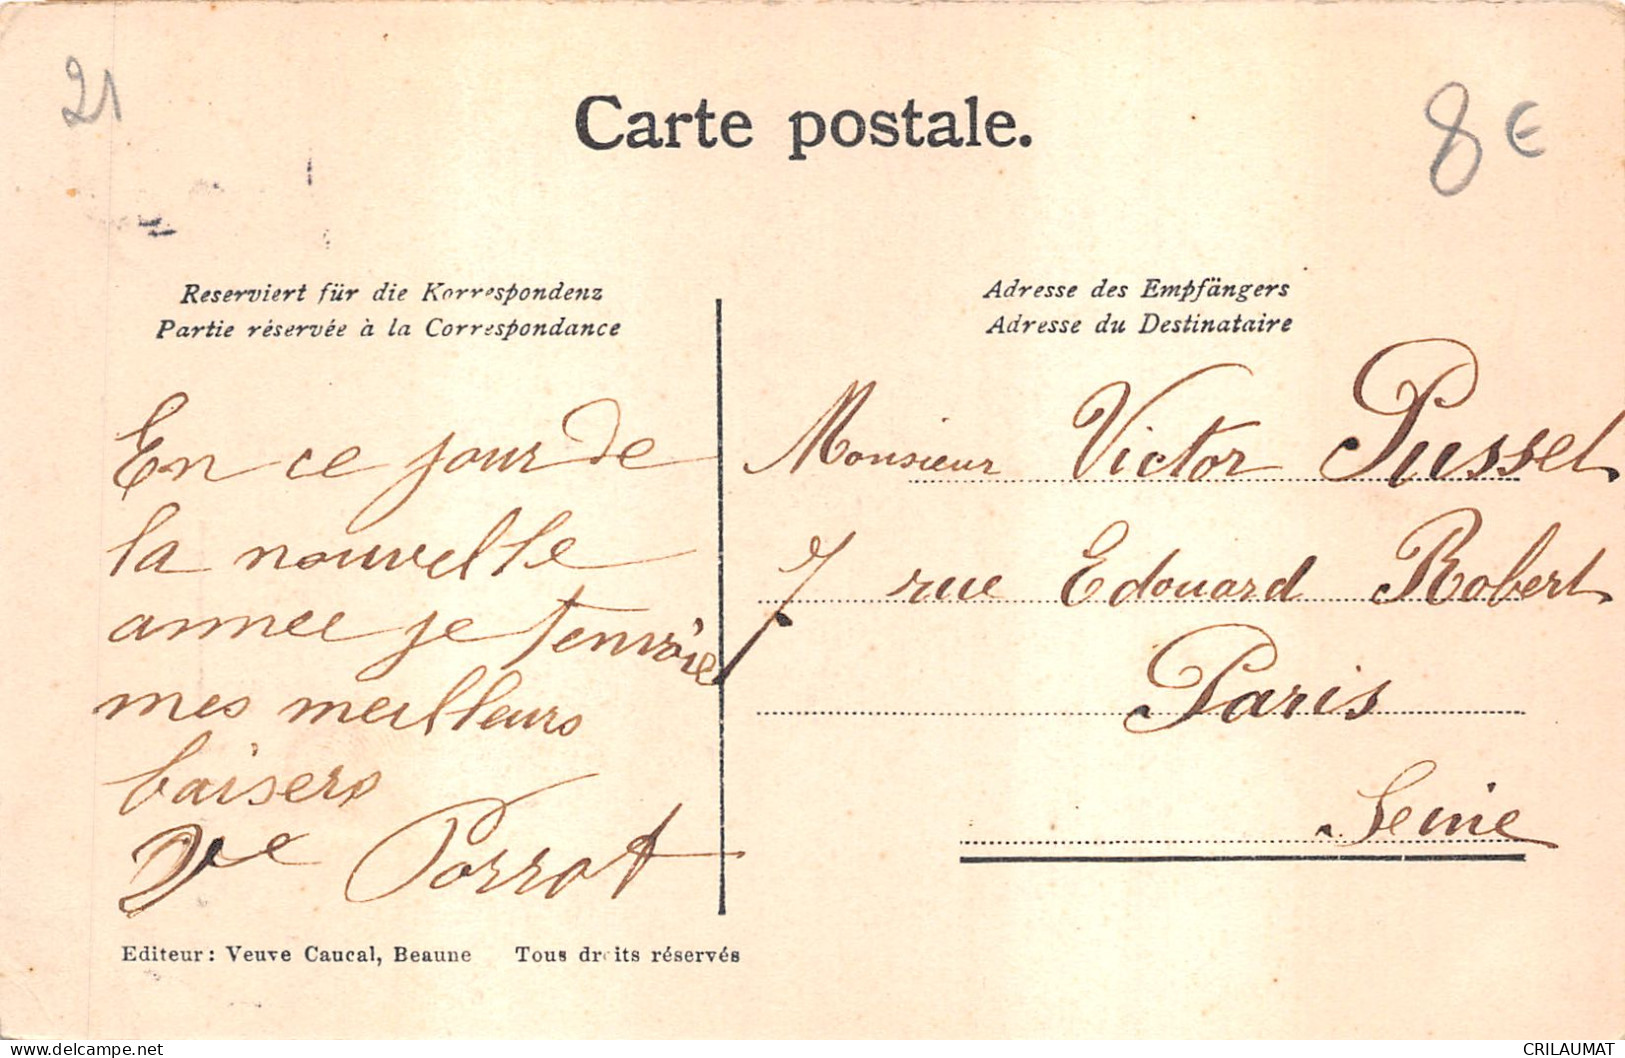 21
Carte postale.
8 €
Reserviert für die Korrespondenz
Partie réservée à la Correspondance
En ce jour de
la nouvelle
année je t'envoie
mes meilleurs
baisers
Vve Porrot
Adresse des Empfängers
Adresse du Destinataire
Monsieur Victor Pusset
7 rue Edouard Robert
Paris
Seine
Editeur: Veuve Caucal, Beaune Tous droits réservés
CRILAUMAT